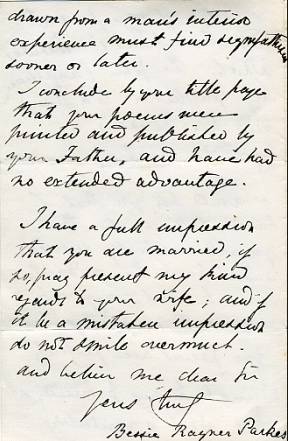 drawn from a man's interior
experience must find sympathisers
sooner or later.
I conclude by your title page
that your poems were
printed and published by
your Father, and have had
no extended advantage.
I have a full impression
that you are married; if
so, pray present my kind
regards to your wife; and if
it be a mistaken impression
do not smile overmuch.
and believe me dear Sir
Yours truly
Bessie Rayner Parkes